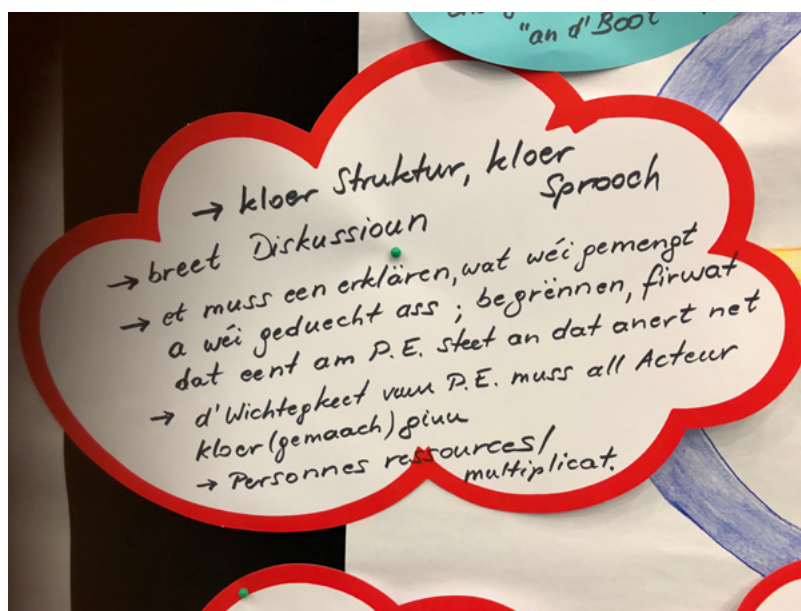 "an d'Boot
→ kloer Struktur, kloer
Sprooch
→ breet Diskussioun
→ et muss een erklären, wat wéi gemengt
a wéi geduecht ass; begrënnen, firwat
dat eent am P.E. steet an dat anert net
→ d'Wichtegkeet vum P.E. muss all Acteur
kloer (gemaach) ginn
→ Personnes ressources/
multiplicat.